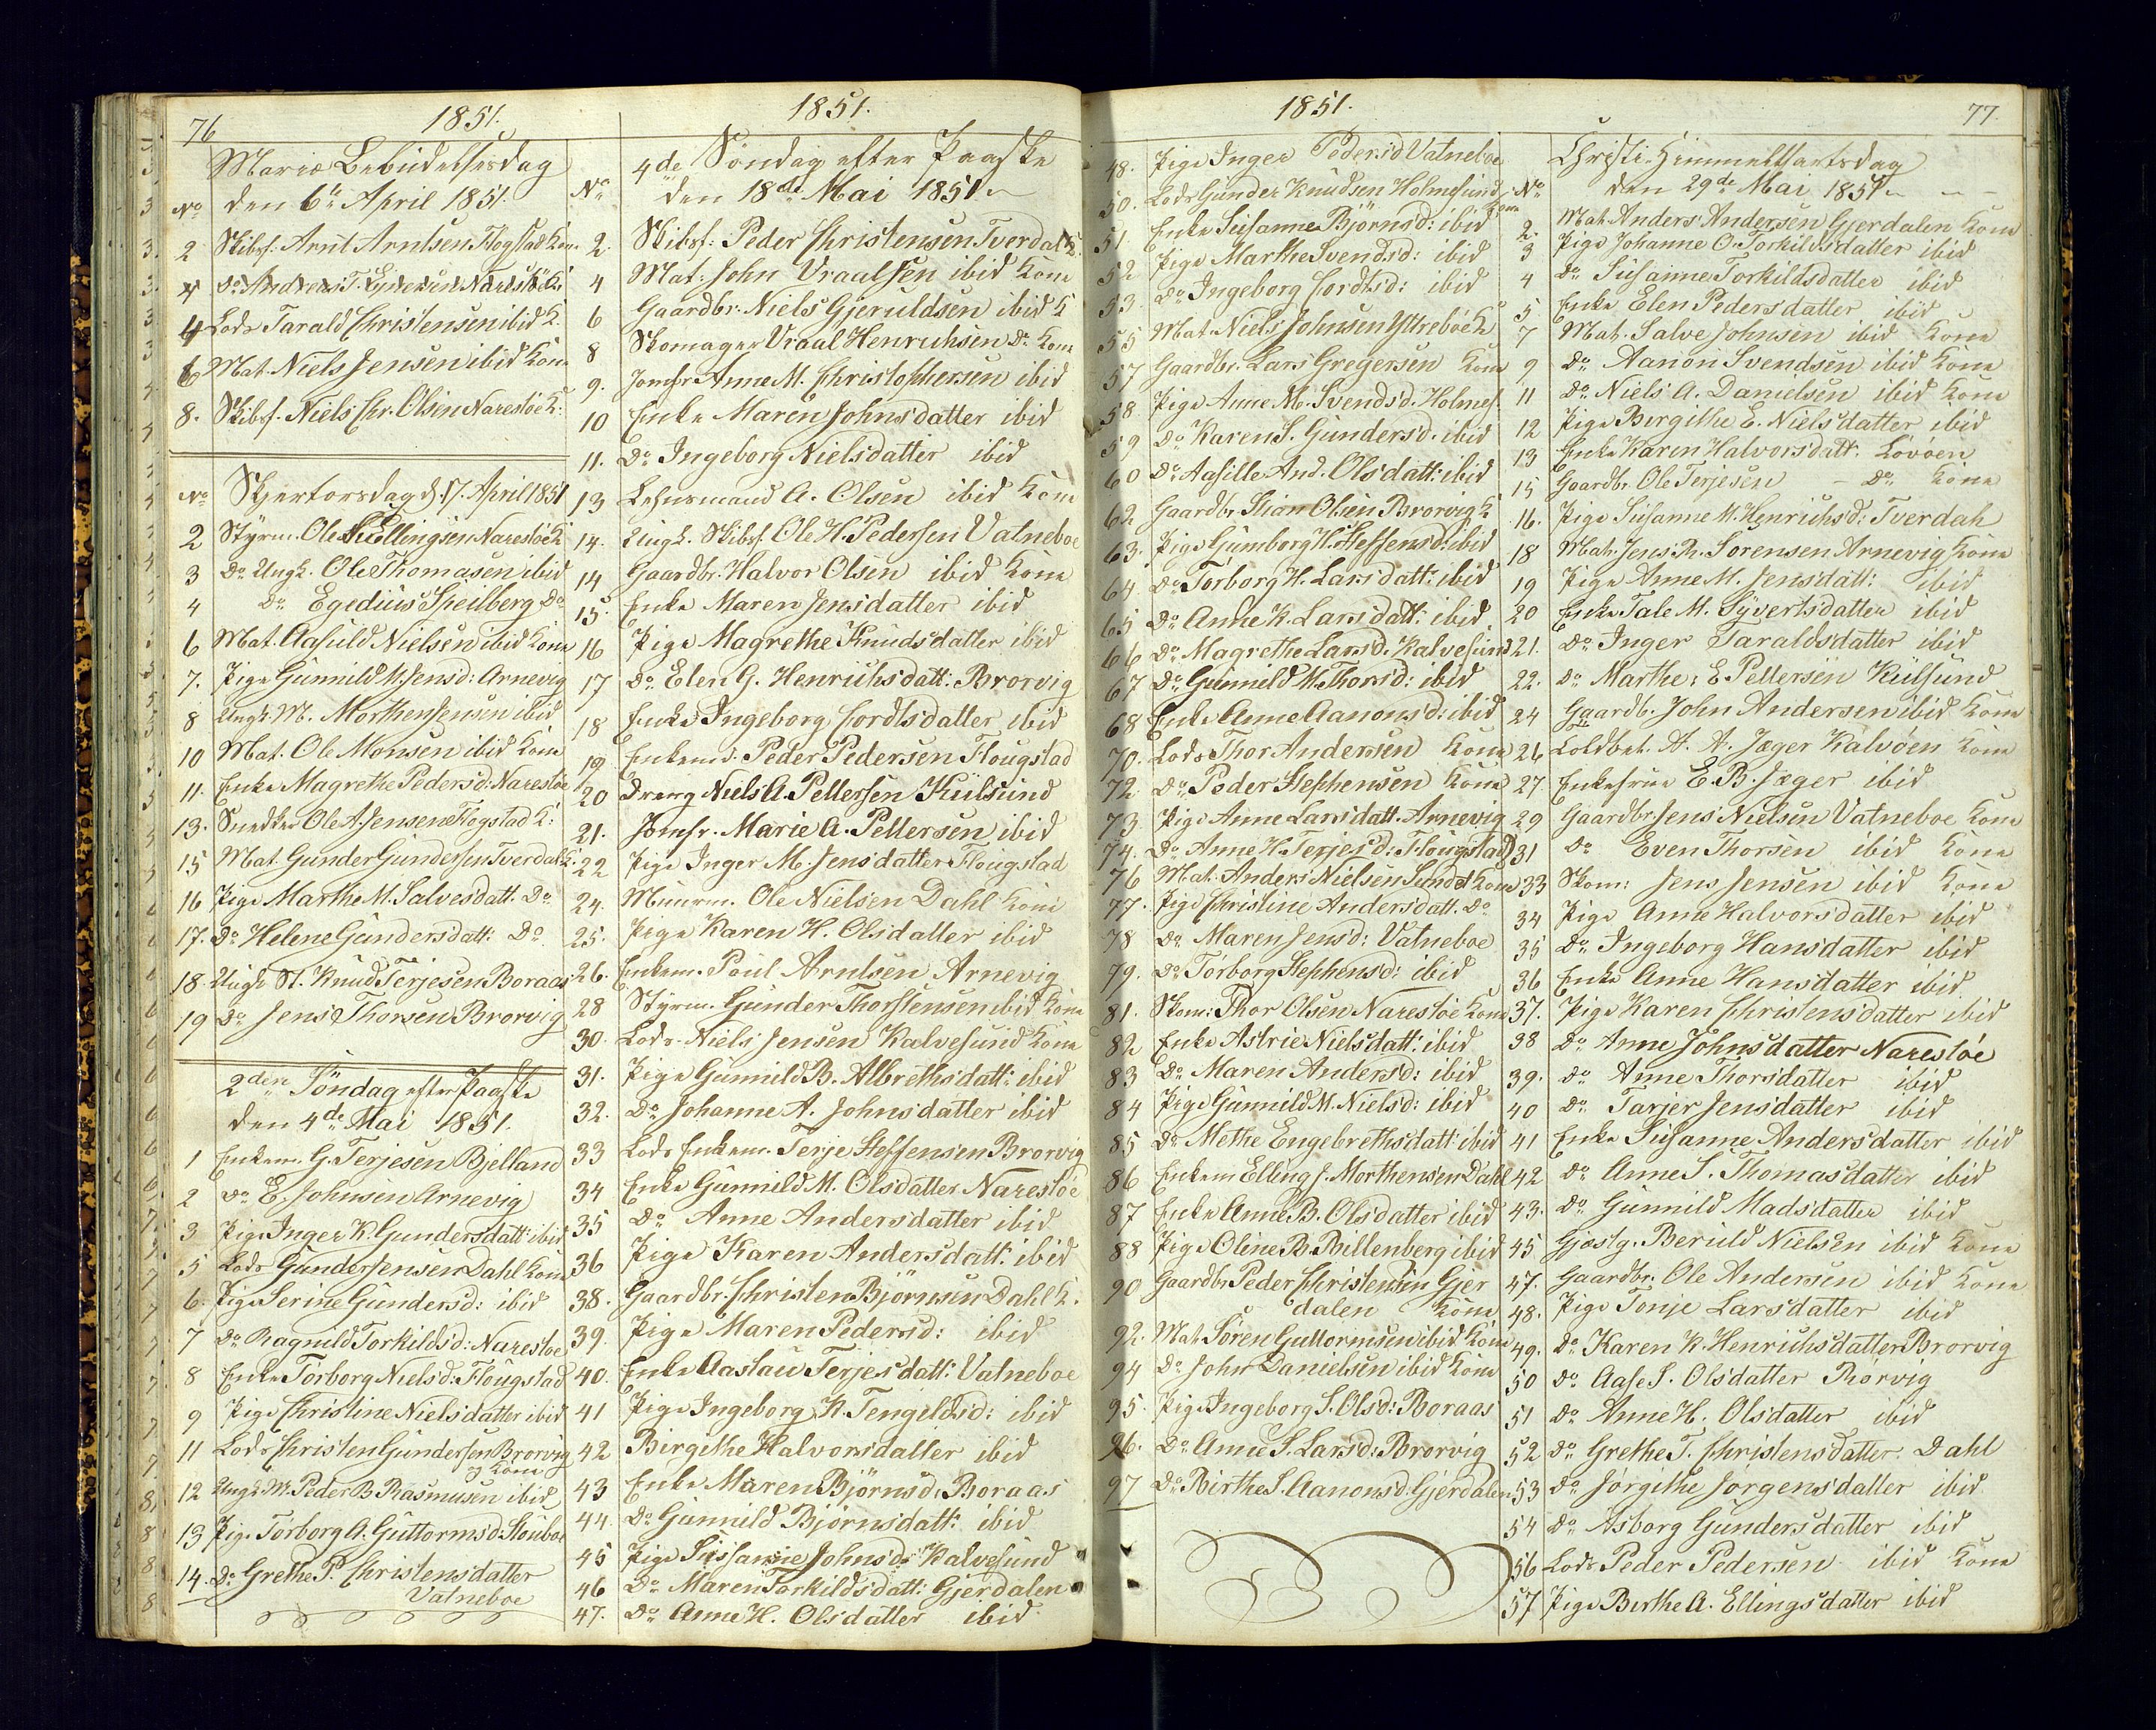 76
1851.
Mariæ Bebudelsesdag
No den 6te April 1851.
2 Skibsf: Arnt Arntsen Flogstad Kone
4 Do Andreas T. Endresen Narestöe K:
4 Lods Tarald Christensen ibid K.
6 Mat. Niels Jensen ibid Kone
8. Skibsf. Niels Chr. Olsen Narestöe K:
No Skjertorsdag d: 17 April 1851
2 Styrm. Ole Ellingsen Narestöe K
3 Do Ungk. Ole Thomasen ibid
4 Do Egedius Speilberg Do
6 Mat. Aasuld Nielsen ibid Kone
7. Pige Gunnild M. Jensd: Arnevig
8 Ungk. M. Morthen Jensen ibid
10 Mat. Ole Monsen ibid Kone
11. Enke Magrethe Pedersd: Narestöe
13. Snedker Ole A. Jensen Flogstad K:
15 Mat. Gunder Gundersen Tverdal K:
16 Pige Marthe M. Salvesdatt. Do
17. Do Helene Gundersdatt: Do
18. Ungk. St. Knud Terjesen Boraas
19 Do Jens Thorsen Brorvig
2den Söndag efter Paaske
den 4de Mai 1851.
1 Enkem. G. Terjesen Bjelland
2 Do E. Johnsen Arnevig
3 Pige Inger K. Gundersdatt: ibid
5 Lods Gunder Jensen Dahl Kone
6. Pige Serine Gundersd: ibid
7 Do Ragnild Torkildsd: Narestoe
8 Enke Torborg Nielsd: Flougstad
9 Pige Christine Nielsdatter ibid
11 Lods Christen Gundersen Brorvig
og Kone
12 Ungk. M. Peder B. Rasmusen ibid
13 Pige Torborg A. Guttormsd: Stouboe
14. Do Grethe P. Christensdatter
Vatneboe
1851.
4de Söndag efter Paaske
No den 18de Mai 1851
2. Skibsf: Peder Christensen Tverdal K.
4 Mat: John Vraalsen ibid Kone
6 Gaardbr. Niels Gjeruldsen ibid K
8 Skomager Vraal Henrichsen Do Kone
9. Jomfr Anne M. Christophersen ibid
10 Enke Maren Johnsdatter ibid
11. Do Ingeborg Nielsdatter ibid
13 Lehnsmand A. Olsen ibid Kone
14. Ungk. Skibsf. Ole H. Pedersen Vatneboe
14 Gaardbr. Halvor Olsen ibid Kone
15. Enke Maren Jensdatter ibid
16 Pige Magrethe Knudsdatter ibid
17 Do Elen G. Henrichsdatt: Brorvig
18 Enke Ingeborg Cordtsdatter ibid
19 Enkemd. Peder Pedersen Flougstad
20 Dreng Niels A. Pettersen Külsund
21. Jomfr. Marie A. Pettersen ibid
22 Pige Inger M. Jensdatter Flougstad
24. Muurm. Ole Nielsen Dahl Kone
25. Pige Karen H. Olsdatter ibid
26. Enkem. Poul Arntsen Arnevig
28 Styrm. Gunder Thorstensen ibid Kone
30. Lods Niels Jensen Kalvesund Kone
31. Pige Gunnild B. Albrethsdatt: ibid
32. Do Johanne A. Johnsdatter ibid
33 Lods Enkem. Terje Steffensen Brorvig
34 Enke Gunnild M. Olsdatter Narestöe
35 Do Anne Andersdatter ibid
36 Pige Karen Andersdatt: ibid
38. Gaardbr. Christen Björnsen Dahl K.
39. Pige Maren Pedersd: ibid
40. Enke Aastau Terjesdatt: Vatneboe
41 Pige Ingeborg K. Tengeldsd: ibid
42 Birgethe Halvorsdatter ibid
43 Enke Maren Björnsd: Boraas
44. Do Gunnild Björnsdatt: ibid
45 Pige Susanne Johnsd: Kalvesund
46 Do Maren Torkildsdatt: Gjerdalen
47. Do Anne H. Olsdatter ibid
1851.
48. Pige Inger Pedersd Vatneboe
50. Lods Gunder Knudsen Holmesund
Kone
51 Enke Susanne Björnsd: ibid
52 Pige Marthe Svendsd: ibid
53. Do Ingeborg Cordtsd: ibid
55 Mat Niels Johnsen Yttreböe K
57 Gaardbr. Lars Gregersen Kone
58. Pige Anne M. Svendsd. Holmes.
59 Do Karen S. Gundersd. ibid
60 Do Aasille And. Olsdatt: ibid
62 Gaardbr Stian Olsen Brorvig K
63. Pige Gumborg H. Steffensd: ibid
64 Do Torborg H. Larsdatt: ibid
65 Do Anne K. Larsdatt: ibid.
66 Do Magrethe Larsd. Kalvesund
67 Do Gunnild M. Thorsd: ibid
68 Enke Anne Aanonsd: ibid
70. Lods Thor Andersen Kone
72 Do Peder Stephensen Kone
73. Pige Anne Larsdatt. Arnevig
74. Do Anne H. Terjesd: Flougstad
76 Mat. Anders Nielsen Sundet Kone
77. Pige Christine Andersdatt. Do
78 Do Maren Jensd: Vatneboe
79. Do Torborg Stephensd: ibid
81. Skom: Thor Olsen Narestöe Kone
82 Enke Astrie Nielsdatt: ibid
83 Do Maren Andersd: ibid
84 Pige Gunnild M. Nielsd: ibid
85 Do Methe Engebrethsdatt: ibid
86 Enkem Elling J. Morthensen Dahl
87 Enke Anne B. Olsdatter ibid
88 Pige Oline B. Billenberg ibid
90 Gaardbr Peder Christensen Gjer
dalen Kone
92. Mat Sören Guttormsen ibid Kone
94 Do John Danielsen ibid Kone
95. Pige Ingeborg S. Olsd: Boraas
96. Do Anne S. Larsd: Brorvig
97 Do Birthe S. Aanonsd: Gjerdalen
77.
Christi-Himmelfartsdag
No den 29de Mai 1851
2. Mat. Anders Andersen Gjerdalen Kone
3 Pige Johanne O. Torkildsdatter ibid
4 Do Susanne Torkildsdatter ibid
5 Enke Elen Pedersdatter ibid
7 Mat. Salve Johnsen ibid Kone
9 Do Aanon Svendsen ibid Kone
11 Do Niels A. Danielsen ibid Kone
12 Pige Birgithe E. Nielsdatter ibid
13 Enke Karen Halvorsdatt: Lovöen
15 Gaardbr. Ole Terjesen - Do Kone
16. Pige Susanne M. Henrichsd: Tverdah
18 Mat. Jens R. Sorensen Arnevig Kone
19 Pige Anne M. Jensdatt: ibid
20 Enke Tale M. Syvertsdatter ibid
21. Do Inger Taraldsdatter ibid
22. Do Marthe E Pettersen Külsund
24 Gaardb. John Andersen ibid Kone
26 Toldbet. A. A. Jæger Kalvöen Kone
27. Enkefrue E. B. Jæger ibid
29 Gaardbr Jens Nielsen Vatneboe Kone
31 Do Even Thorsen ibid Kone
33 Skom: Jens Jensen ibid Kone
34 Pige Anne Halvorsdatter ibid
35 Do Ingeborg Hansdatter ibid
36 Enke Anne Hansdatter ibid
37. Pige Karen Christensdatter ibid
38 Do Anne Johnsdatter Narestöe
39. Do Anne Thorsdatter ibid
40 Do Tarjer Jensdatter ibid
41 Enke Susanne Andersdatter ibid
42 Do Anne S. Thomasdatter ibid
43. Do Gunnild Madsdatter ibid
45 Gjæstg. Beruld Nielsen ibid Kone
47. Gaardbr. Ole Andersen ibid Kone
48. Pige Tonje Larsdatter ibid
49. Do Karen K. Henrichsdatter Brorvig
50 Do Aase S. Olsdatter Rörvig
51 Do Anne H. Olsdatter ibid
52 Do Grethe T. Christensdatter. Dahl
53 Do Jørgithe Jorgensdatter ibid
54 Do Asborg Gundersdatter ibid
56 Lods Peder Pedersen ibid Kone
57 Pige Birthe A. Ellingsdatter ibid